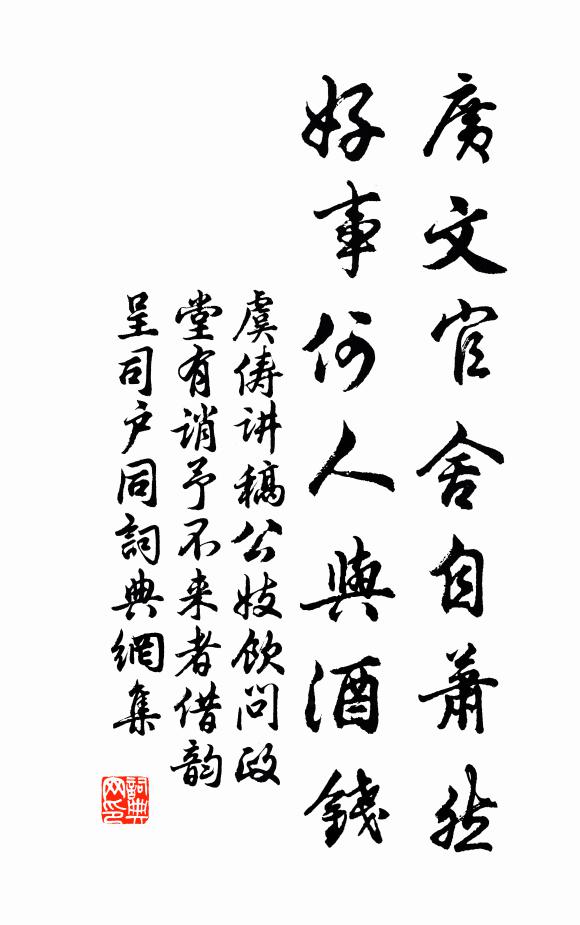 廣文官舍自蕭然
好事何人與酒錢
虞俦讲稿公妓飲问政
堂有誚予不来者借韵
呈司户同詞典網集
詞典网印